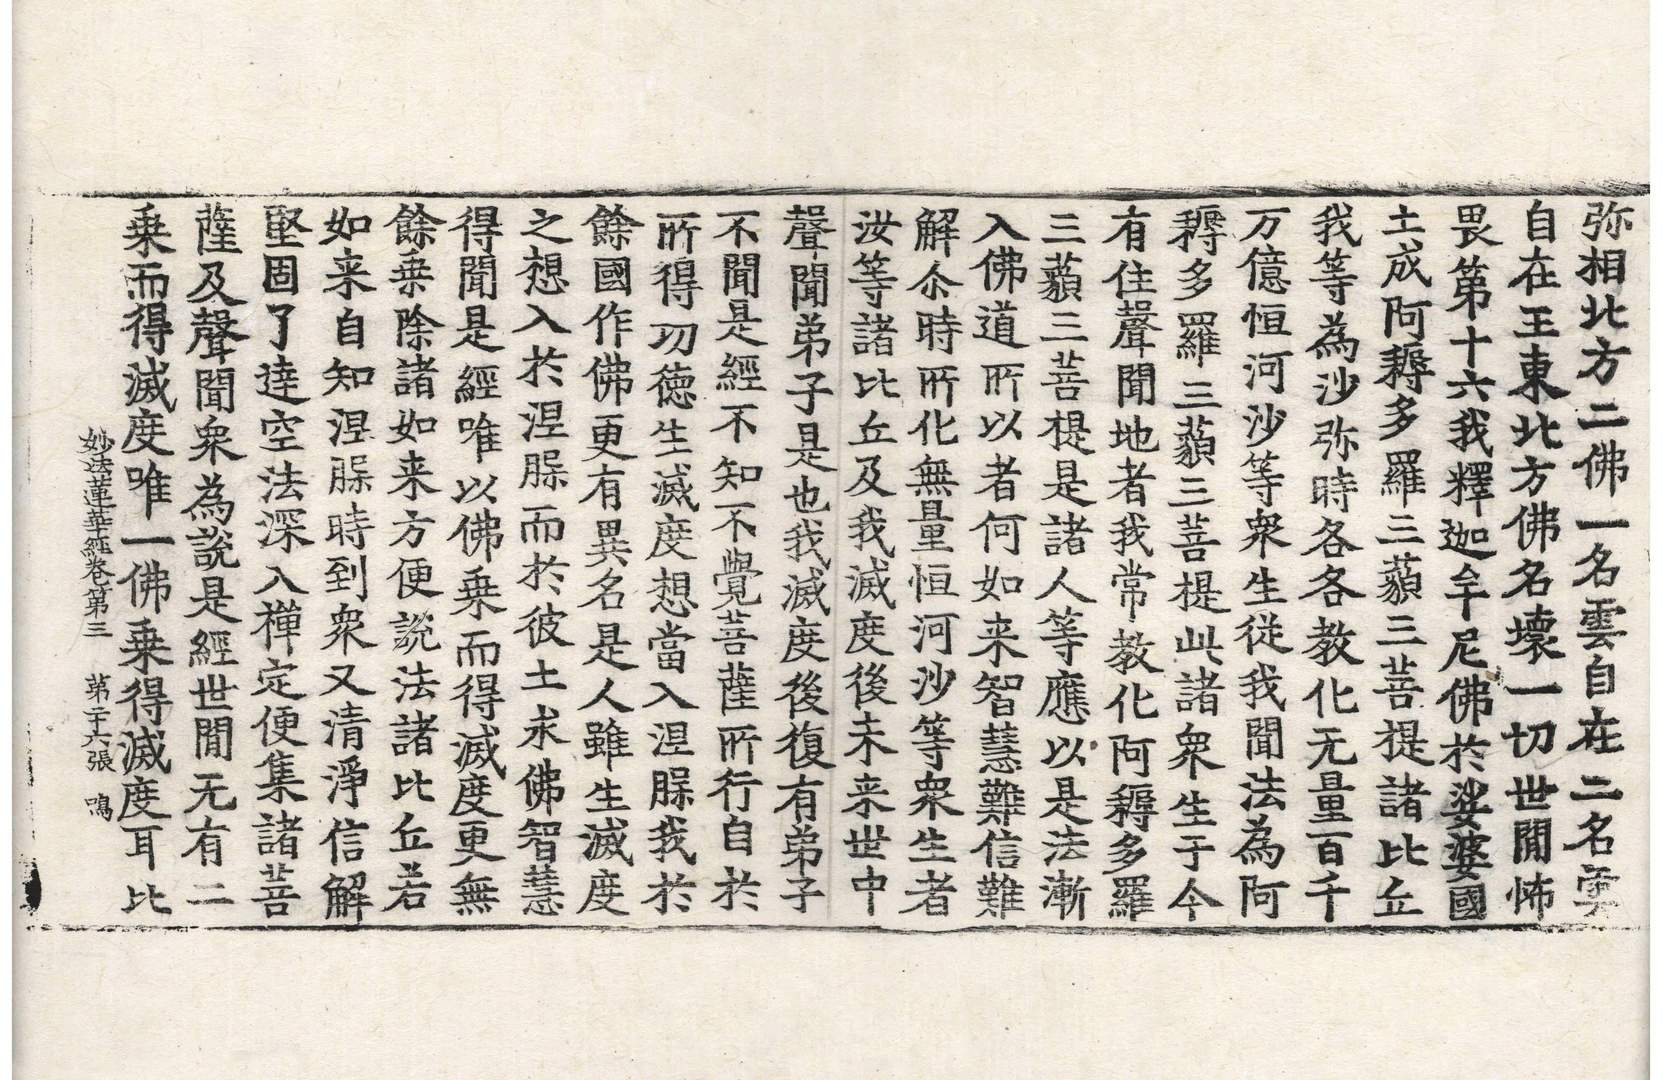 弥相北方二佛一名雲自在二名雲
自在王東北方佛名壞一切世閒怖
畏第十六我釋迦牟尼佛於娑婆國
土成阿耨多羅三藐三菩提諸比丘
我等為沙弥時各各教化无量百千
万億恒河沙等衆生從我聞法為阿
耨多羅三藐三菩提此諸衆生于今
有住聲聞地者我常教化阿耨多羅
三藐三菩提是諸人等應以是法漸
入佛道所以者何如来智慧難信難
解尒時所化無量恒河沙等衆生者
汝等諸比丘及我滅度後未来世中
聲聞弟子是也我滅度後復有弟子
不聞是經不知不覺菩薩所行自於
所得功德生滅度想當入涅槃我於
餘國作佛更有異名是人雖生滅度
之想入於涅槃而於彼土求佛智慧
得聞是經唯以佛乗而得滅度更無
餘乗除諸如来方便說法諸比丘若
如来自知涅槃時到衆又清淨信解
堅固了達空法深入禪定便集諸菩
薩及聲聞衆為說是經世閒无有二
乗而得滅度唯一佛乗得滅度耳比
妙法蓮華經卷第三　第二十六張　鳴